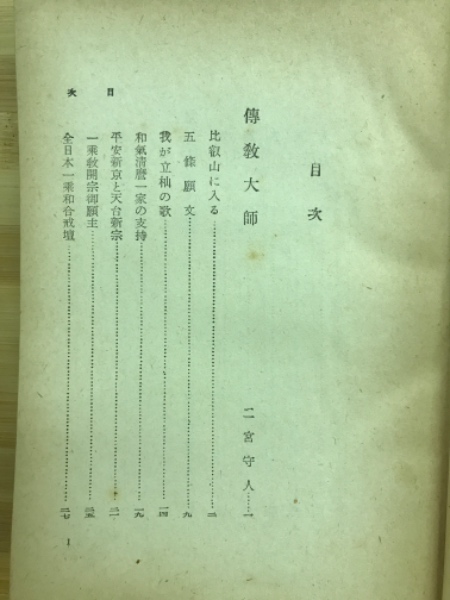 目次
傳教大師 二宮守人……一
比叡山に入る……二
五條願文……九
我が立杣の歌……一四
和氣淸麿一家の支持……一九
平安新京と天台新宗……二一
一乘敎開宗御願主……二五
全日本一乘和合戒壇……二七
目次
1